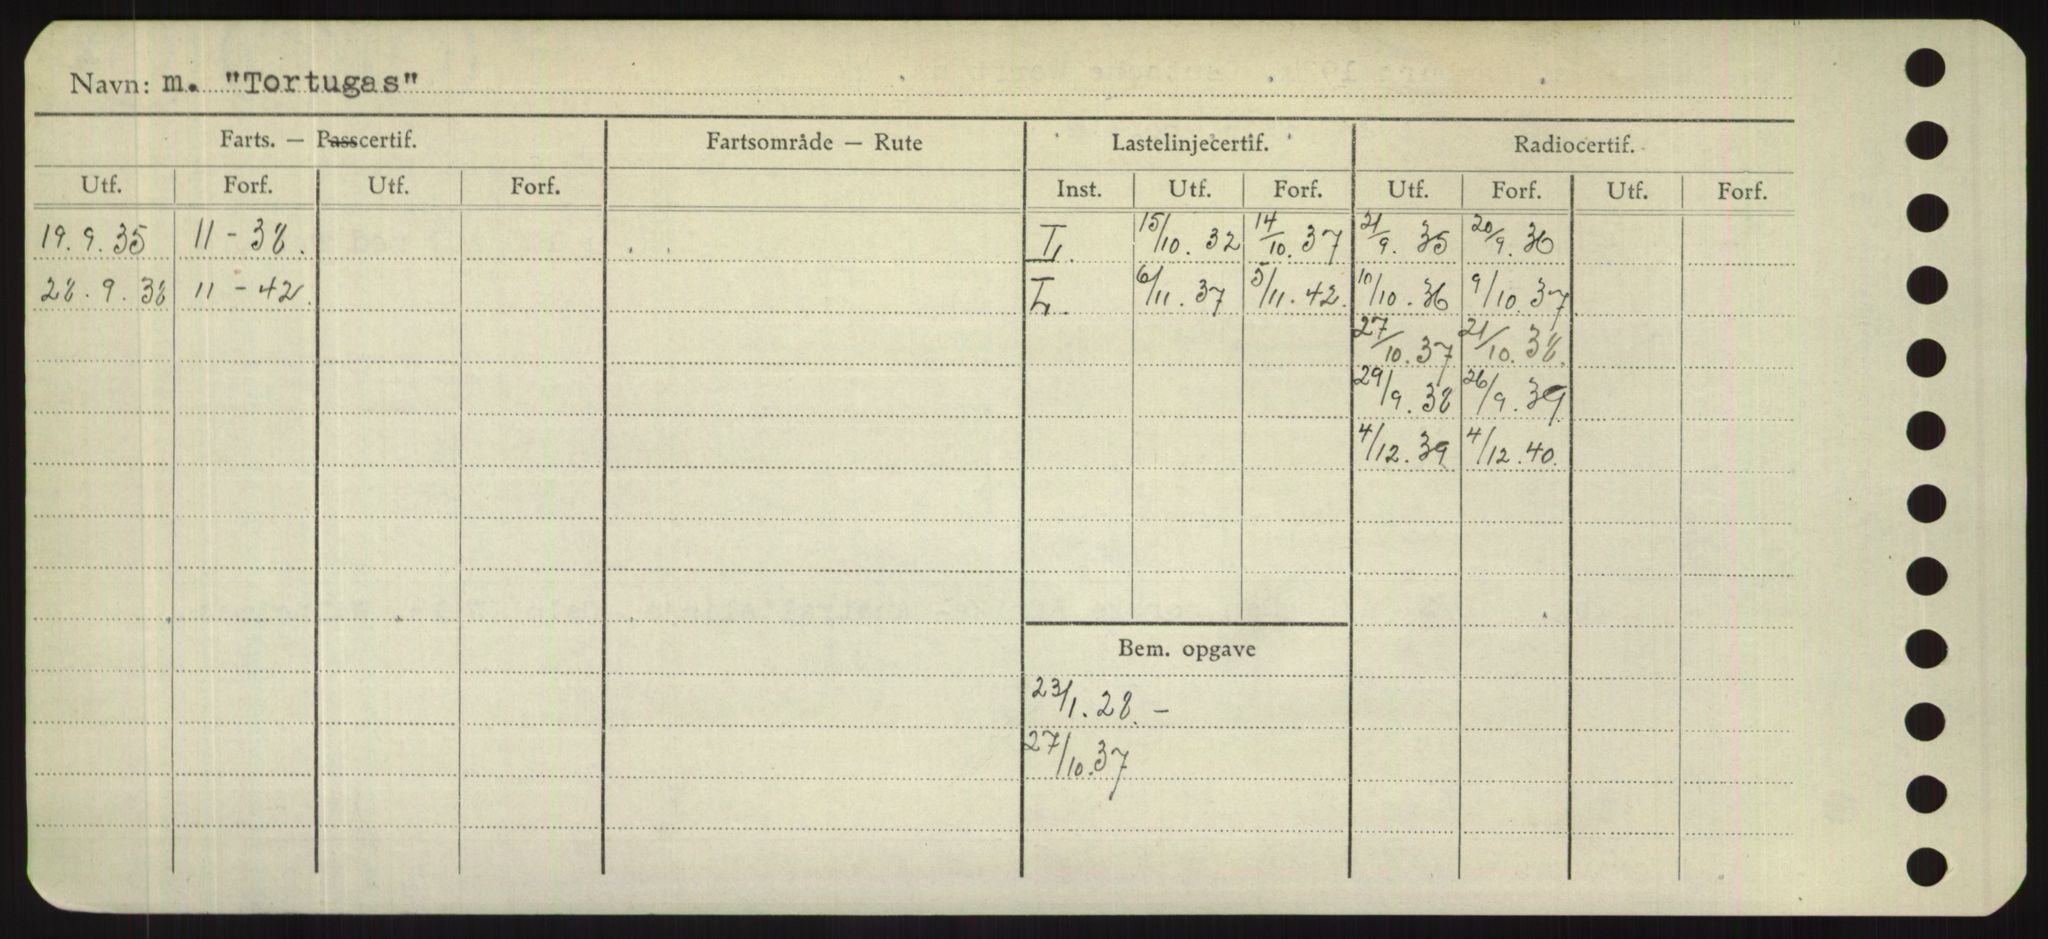 Navn: m. "Tortugas"
Farts. — Passcertif. Fartsområde — Rute Lastelinjecertif. Radiocertif.
Utf. Forf. Utf. Forf. Inst. Utf. Forf. Utf. Forf. Utf. Forf.
19.9.35 11-38. L. 15/10.32 14/10.37 21/9.35 20/9.36
28.9.38 11-42. L. 6/11.37 5/11.42. 10/10.36 9/10.37
27/10.37 21/10.38.
29/9.38 26/9.39
4/12.39 4/12.40.
Bem. opgave
23/1.28. -
27/10.37